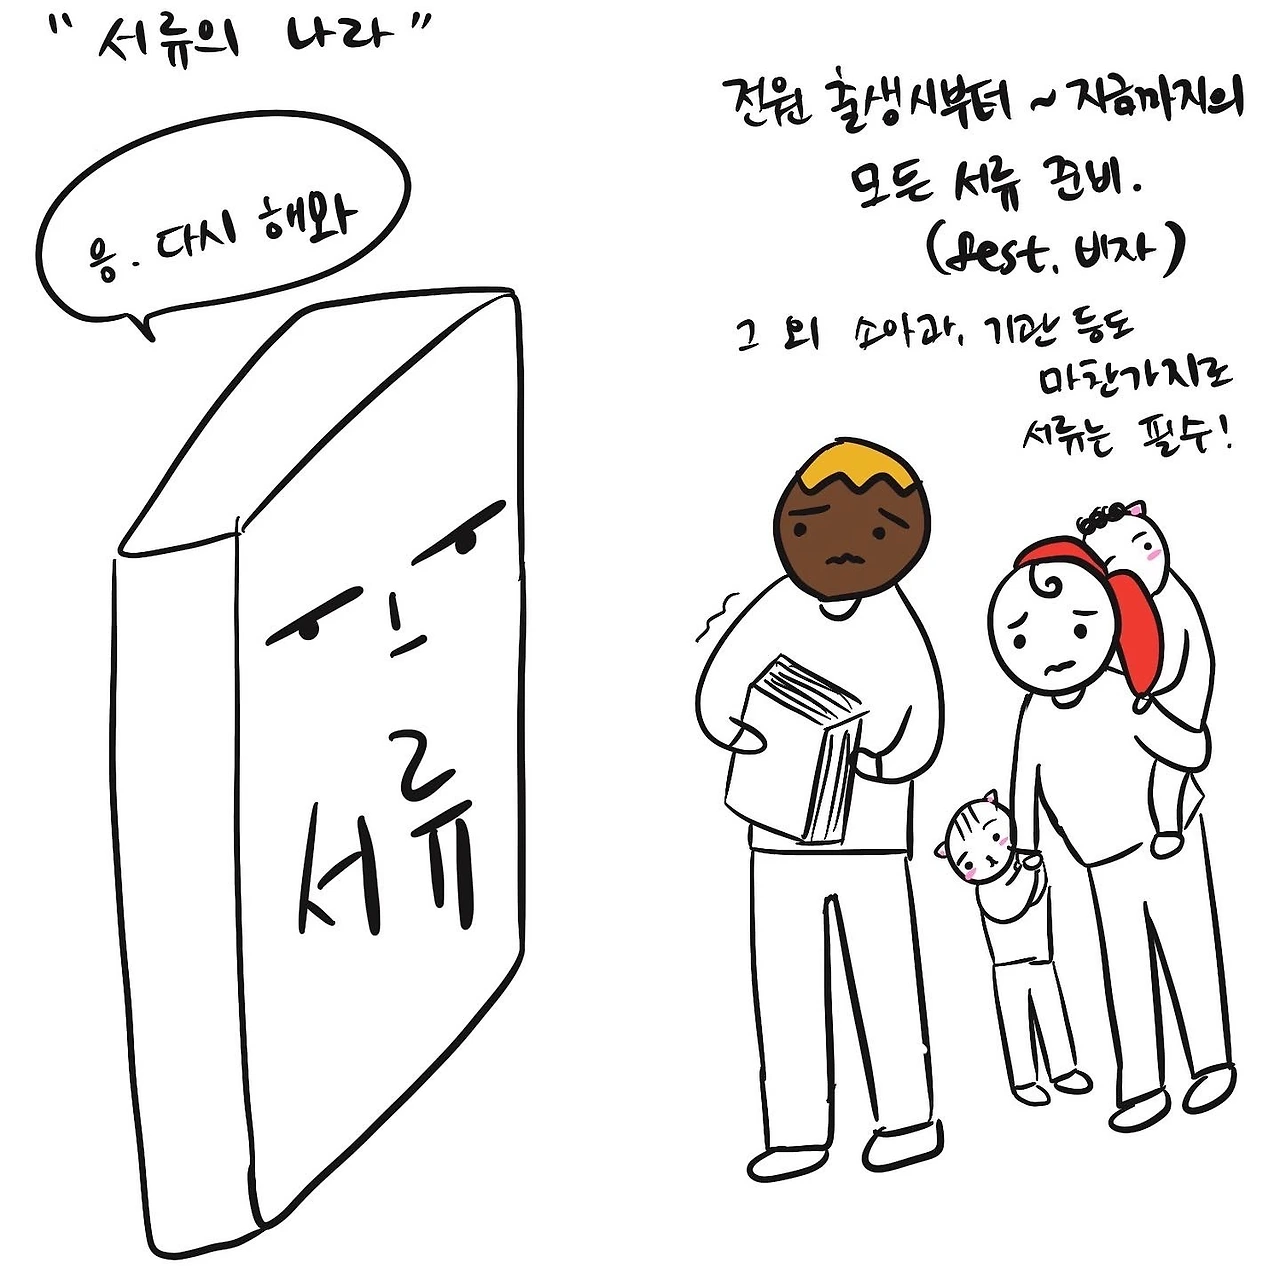 "서류의 나라"
응. 다시 해와
서류
전원 출생시부터 ~ 지금까지의
모든 서류 준비.
(feat. 비자)
그 외 소아과, 기관 등도
마찬가지로
서류는 필수!